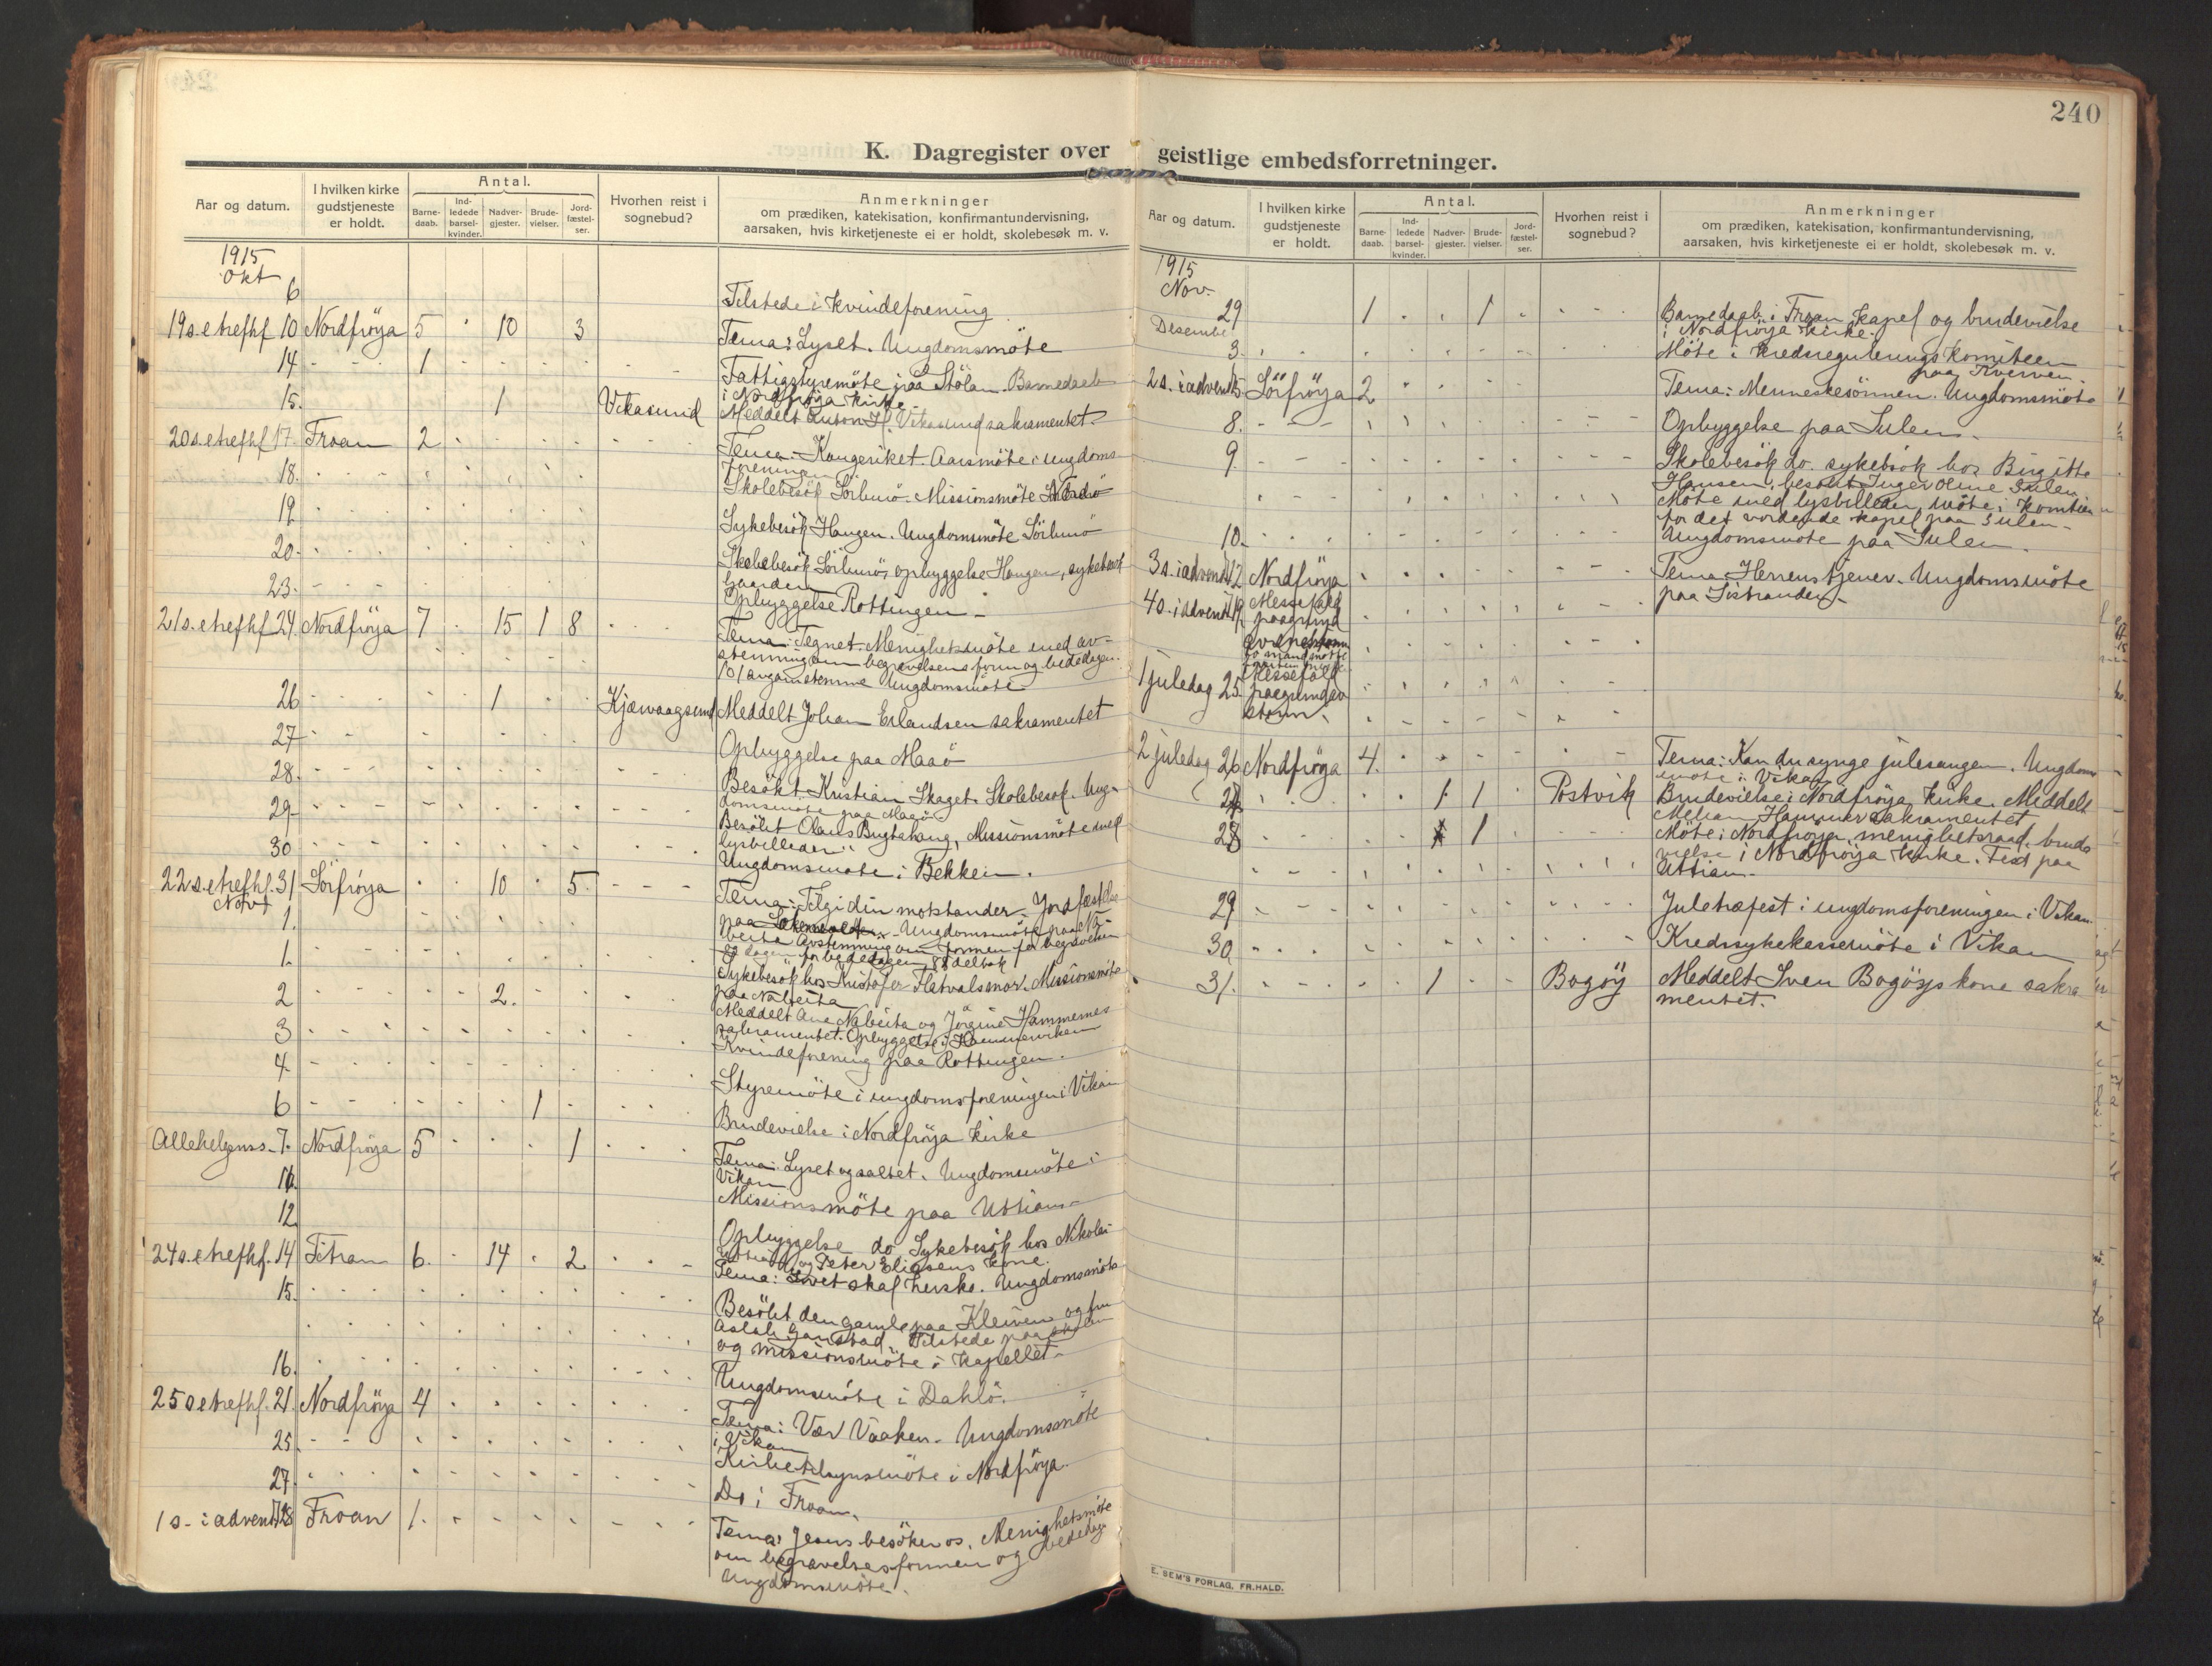 240
K. Dagregister over geistlige embedsforretninger.
Aar og datum.
I hvilken kirke gudstjeneste er holdt.
Antal.
Barne-daab.
Ind-ledede barsel-kvinder.
Nadver-gjester.
Brude-vielser.
Jord-fæstel-ser.
Hvorhen reist i sognebud?
Anmerkninger
om prædiken, katekisation, konfirmantundervisning,
aarsaken, hvis kirketjeneste ei er holdt, skolebesøk m. v.
1915
Okt
6 Tilstede i kvindeforening
19 s. e trefhf 10 Nordfröya 5 10 3 Tema: Lyset. Ungdomsmöte
14 1 Fattigstyremöte paa Stölan. Barnedaab
i Nordfröya kirke
15. 1 Vikasund Meddelt Anton H. Vikasund sakramentet
20 s. e trefhf 17. Froan 2 Tema: Kongeriket. Aarsmöte i ungdoms-
foreningen
18. Skolebesök Sörburö. Missionsmöte
19 Sykebesök Haugen. Ungdomsmöte Sörburö
20. Skolebesök Sörburö, opbyggelse Haugen, sykebesök
Gaarden
23. Opbyggelse Rottingen
21 s. e trefhf 24. Nordfröya 7 15 1 8 Tema: Tegnet. Menighetsmöte med av-
stemning om begravelsens form og bededagen.
Ungdomsmöte
26 1 Kjævaagsund Meddelt Johan Erlandsen sakramentet
27 Opbyggelse paa Maaö
28. Besökt Kristian Skaget. Skolebesök. Ung-
domsmöte paa Maaö
29 Besökt Olaus Bugtehaug, Missionsmöte med
lysbilleder
30 Ungdomsmöte i Bekken.
22 s. e trefhf. 31 Sörfröya 10 5. Tema: motstander. Jordfæstelse
Nov.
1. paa Ungdomsmöte paa Na-
beita Avstemning om formen for begravelsen
og dagen for bededagen, 88 deltok
1. Sykebesök hos Kristofer Flatvalsnar. Missionsmöte
paa Nabeita
2 2. Meddelt Ane Nabeita og Jörgine Hammernes
sakramentet. Opbyggelse i Hammervikem
3 Kvindeforening paa Rottingen.
4. Styremöte i ungdomsforeningen i Vikan
6 1 Brudevielse i Nordfröya kirke
Allehelgenss. 7. Nordfröya 5 1 Tema: Lyset og saltet. Ungdomsmöte i
Vikan
11. Missionsmöte paa Uttian
12 Opbyggelse do Sykebesök hos Nikolai
Uttian og Peter Eliasens kone.
24 s. e trefhf. 14 Titran 6. 14 2 Tema: Livet skal herske. Ungdomsmöte
15. Besökt den gamle paa Kleiven og fru
Aslak Gaustad. Tilstede paa skolen
og missionsmöte i kapellet
16. Ungdomsmöte i Dahlö.
25 s e trefhf. 21. Nordfröya 4 Tema: Vær Vaaken. Ungdomsmöte
i Vikan
25 Kirketilsynsmöte i Nordfröya.
27. Do i Froan.
1 s. i advent 28 Froan 1. Tema: Jesus besöker os. Menighetsmöte
om begravelsesformen og bededag
Ungdomsmöte.
Aar og datum.
I hvilken kirke gudstjeneste er holdt.
Antal.
Barne-daab.
Ind-ledede barsel-kvinder.
Nadver-gjester.
Brude-vielser.
Jord-fæstel-ser.
Hvorhen reist i sognebud?
Anmerkninger
om prædiken, katekisation, konfirmantundervisning,
aarsaken, hvis kirketjeneste ei er holdt, skolebesøk m. v.
1915
Nov.
29 1 1 Barnedaab i Froan kapel og brudevielse
i Nordfröya kirke.
Desember
3. Möte i kredsreguleringskomiteen
paa Kverven.
2 s. i advent 5. Sörfröya 2 Tema: Menneskesönnen. Ungdomsmöte
8. Opbyggelse paa Sulen.
9. Skolebesök do. sykebesök hos Birgitte
Hansen, besökt Inger Oline Sulen
Möte med lysbilleder, möte i komiteen
for det vordende kapel paa Sulen
10. Ungdomsmöte paa Sulen.
3 s. i advent 12 Nordfröya Tema: Herrens tjener. Ungdomsmöte
paa Sistranden
4 s. i advent 19. Messefald
paagrund
1 juledag 25. Messefald
paagrund av
storm.
2 juledag 26 Nordfröya 4. Tema: Kan du synge julesangen. Ungdoms
möte i Vikan
27 1 1 Postvik Brudevielse i Nordfröya kirke. Meddelt
Hammer sakramentet
28 1 Möte i Nordfröya menighetsraad, brude
vielse i Nordfröya kirke. Fest paa
Uttian
29 Juletræfest i ungdomsforeningen i Vikan
30 Kredssykekassemöte i Vikan
31. 1 Bogöy Meddelt Sven Bogöys kone sakra
mentet.
E. SEM'S FORLAG, FR.HALD.